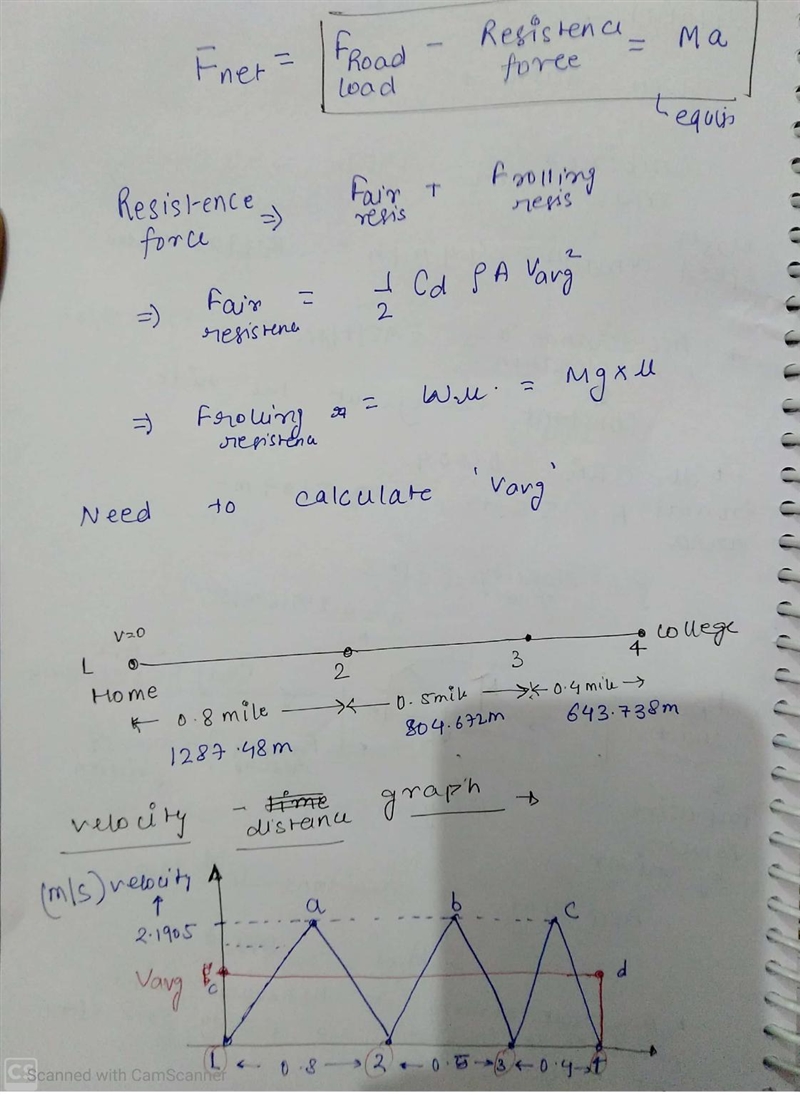 Fnet = FRoad load - Resistence force = Ma
Resistence force => Fair resis + Frolling resis
=> Fair resistena = 1/2 Cd ρ A Varg²
=> Frolling resistena = W.μ. = Mg×μ
Need to calculate 'varg'
V=0
1 2 3 4 college
Home
0.8 mile 0.5 mile 0.4 mile
1287.48m 804.672m 643.738m
velocity - distance graph →
(m/s) velocity
a b c
2.1905
Varg d
1 0.8 2 0.5 3 0.4 4
CS Scanned with CamScanner